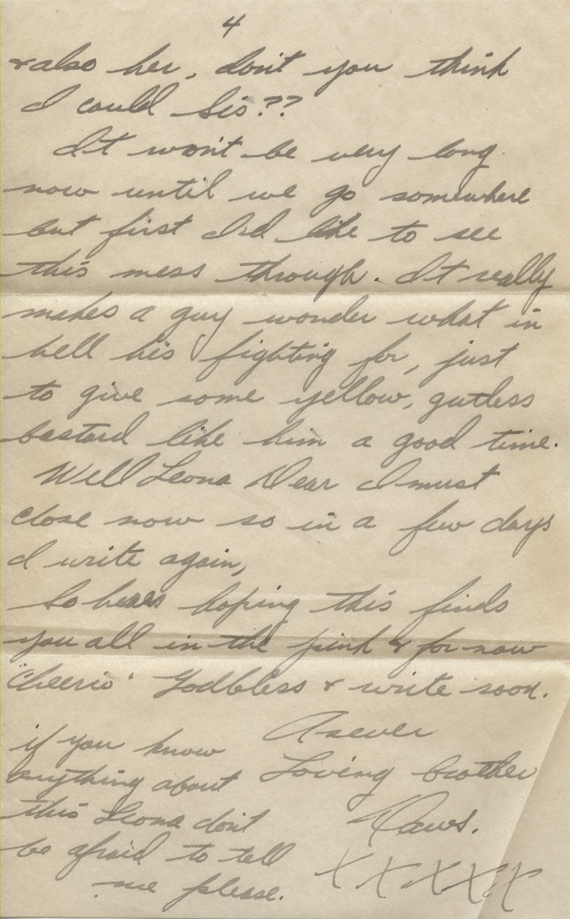 4
& also her, don't you think
I could Sis??
It won't be very long
now until we go somewhere
but first I'd like to see
this mess through. It really
makes a guy wonder what in
hell he's fighting for, just
to give some yellow, gutless
bastard like him a good time.
Well Leona Dear I must
close now so in a few days
I write again,
So heres hoping this finds
you all in the pink & for now
"Cheerio" Godbless & write soon.
As ever
Loving brother
Daws.
XXXXX
if you know
anything about
this Leona don't
be afraid to tell
me please.